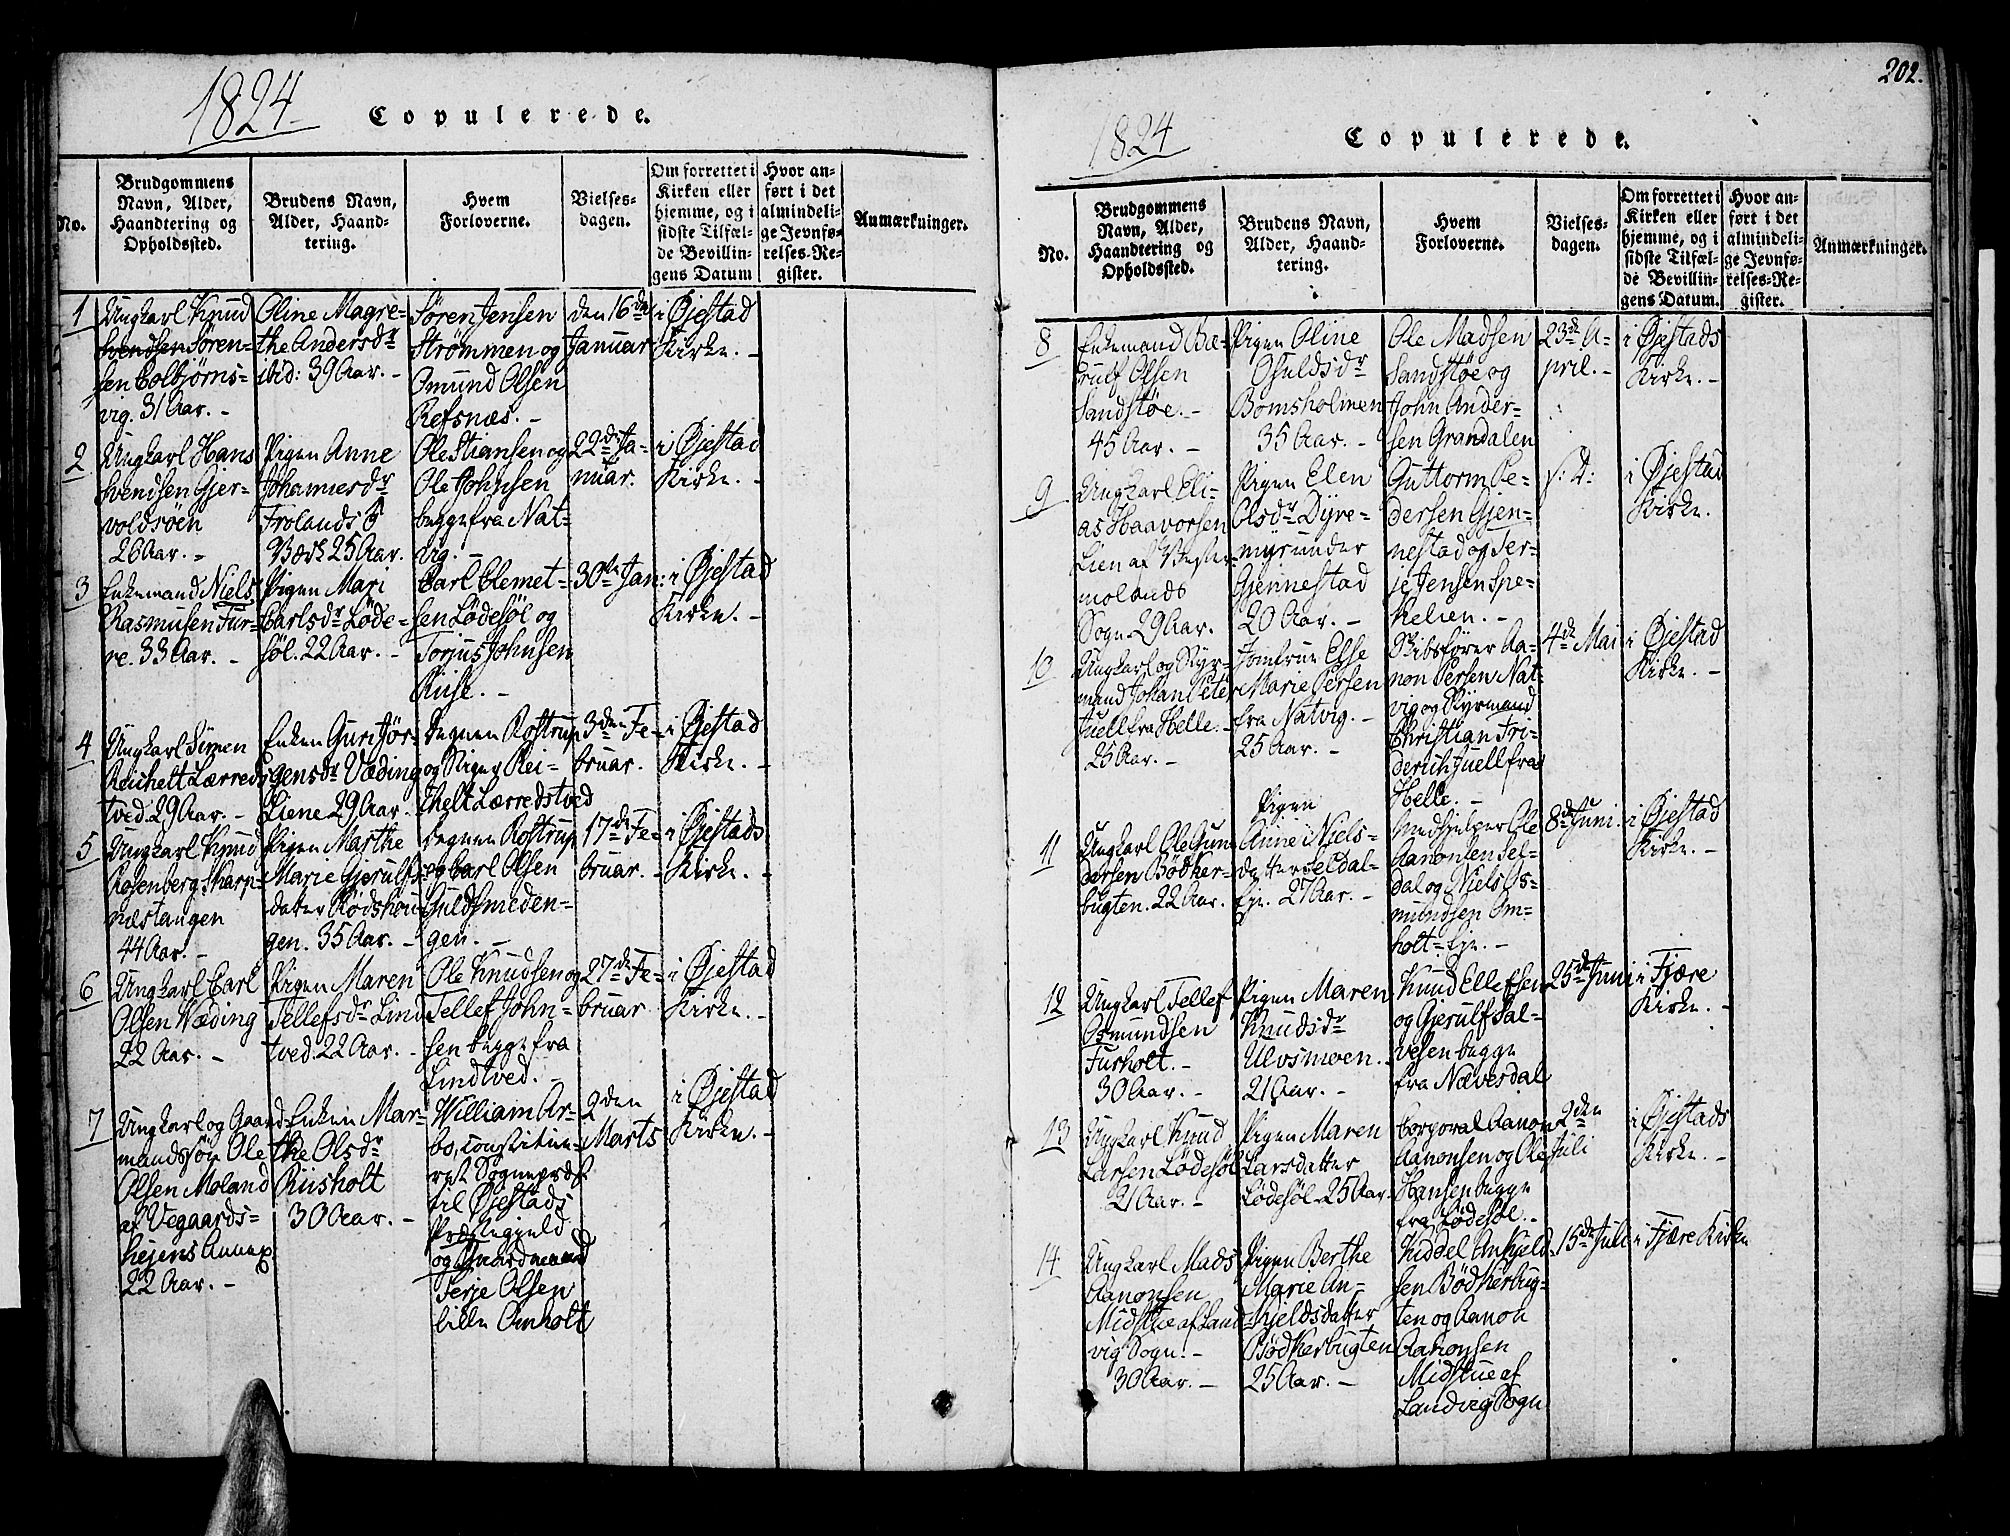 1824
Copulerede.
No.
Brudgommens
Navn, Alder,
Haandtering og
Opholdssted.
Brudens Navn,
Alder, Haand-
tering.
Hvem
Forloverne.
Vielses-
dagen.
Om forrettet i
Kirken eller
hjemme, og i
sidste Tilfæl-
de Bevillin-
gens Datum
Hvor an-
ført i det
almindeli-
ge Jevnfø-
relses-Re-
gister.
Anmærkninger.
1
Ungkarl Knud
Svendsen Søren-
sen Colbjørns-
vig. 31 Aar. -
Oline Magre-
the Andersdr
ibid: 39 Aar. -
Søren Jensen
Strømmen og
Omund Olsen
Refsnæs. -
den 16de
Januar
i Øjestad
Kirke. -
2
Ungkarl Hans
Svendsen Gjer-
voldsøen
26 Aar. -
Pigen Anne
Johannesdr
Frolands
Værk 25 Aar.
Ole Stiansen og
Ole Johnsen
begge fra Nat-
vig. -
22de Ja-
nuar.
i Øjestad
Kirke. -
3
Enkemand Niels
Rasmusen Fur-
re. 33 Aar. -
Pigen Mari
Carlsdr Løde-
søl. 22 Aar. -
Carl Clemet-
sen Lødesøl og
Torjus Johnsen
Riise. -
30te Jan:
i Øjestad
Kirke. -
4
Ungkarl Simen
Reichelt Lærreds-
tved. 29 Aar. -
Enken Guri Jør-
gensdr Væding
Eiene 29 Aar.
Degnen Rostrup
og Niger Rei-
chelt Lærredstved
3den Fe-
bruar.
i Øjestad
Kirke. -
5
Ungkarl Knud
Rosenberg Skarp-
næstangen
44 Aar. -
Pigen Marthe
Marie Gjerulfs-
datter Rødshøu-
gen. 35 Aar. -
Degnen Rostrup
og Carl Olsen
Guldsmeden-
gen. -
17de Fe-
bruar. -
i Øjestads
Kirke. -
6
Ungkarl Carl
Olsen Væding
22 Aar. -
Pigen Maren
Tellefsdr Lind-
tved. 22 Aar. -
Ole Knudsen og
Tellef John-
sen begge fra
Lindtved. -
27de Fe-
bruar
i Øjestad
Kirke. -
7
Ungkarl og Gaard-
mandssøn Ole
Olsen Moland
af Vegaards-
hejens Annex
22 Aar. -
Enken Mar-
the Olsdr
Riisholt
30 Aar. -
William Ar-
bo, constitue-
ret Sognepræst
til Øjestads
Præstegjeld
og Gaardmand
Terje Olsen
lille Omholt
2den
Marts
i Øjestad
Kirke. -
202.
1824
Copulerede.
No.
Brudgommens
Navn, Alder,
Haandtering og
Opholdssted.
Brudens Navn,
Alder, Haand-
tering.
Hvem
Forloverne.
Vielses-
dagen.
Om forrettet i
Kirken eller
hjemme, og i
sidste Tilfæl-
de Bevillin-
gens Datum.
Hvor an-
ført i det
almindeli-
ge Jevnfø-
relses-Re-
gister.
Anmærkninger.
8
Enkemand Be-
rulf Olsen
Sandstøe. -
45 Aar. -
Pigen Oline
Osuldsdr
Bomsholmen
35 Aar. -
Ole Madsen
Sandstøe og
John Ander-
sen Grandalen
23de A-
pril. -
i Øjestads
Kirke. -
9
Ungkarl Eli-
as Haavorsen
Lien af Vester-
molands
Sogn. 29 Aar.
Pigen Elen
Olsdr Dyre-
myr under
Gjennestad
20 Aar. -
Guttorm Pe-
dersen Gjen-
nestad og Ter-
je Jensen Spe-
kelien. -
s: D:
i Øjestad
Kirke.
10
Ungkarl og Styr-
mand Johan Peter
Juell fra Helle. -
25 Aar. -
Jomfrue Else
Marie Persen
fra Natvig. -
25 Aar. -
Skibsfører Aa-
non Persen Nat-
vig og Styrmand
Christian Fri-
derich Juell fra
Helle. -
4de Mai
i Øjestad
Kirke. -
11
Ungkarl Ole Gun-
dersen Bødker-
bugten. 22 Aar.
Pigen
Anne Niels-
datter Seldal-
Eje. 27 Aar. -
Medhjelper Ole
Aanonsen Sel-
dal og Niels Os-
mundsen Om-
holt-Eje. -
8de Juni
i Øjestad
Kirke. -
12
Ungkarl Tellef
Osmundsen
Furholt. -
30 Aar. -
Pigen Maren
Knudsdr
Ulvsmoen.
21 Aar. -
Knud Ellefsen
og Gjerulf Sal-
vesen begge
fra Nævesdal
25de Juni
i Fjære
Kirke. -
13
Ungkarl Knud
Larsen Lødesøl
21 Aar. -
Pigen Maren
Larsdatter
Lødesøl 25 Aar.
Corporal Aanon
Aanonsen og Ole
Hansen begge
fra Lødesøl. -
2den
Juli
i Øjestads
Kirke. -
14
Ungkarl Mads
Aanonsen
Midstue af Land-
vig Sogn. -
30 Aar. -
Pigen Berthe
Marie An-
kjeldsdatter
Bødkerbugten
25 Aar. -
Kiddel Ankjeld-
sen Bødkerbug-
ten og Aanon
Aanonsen
Midstue af
Landvig Sogn
15de Juli
i Fjære Kirke